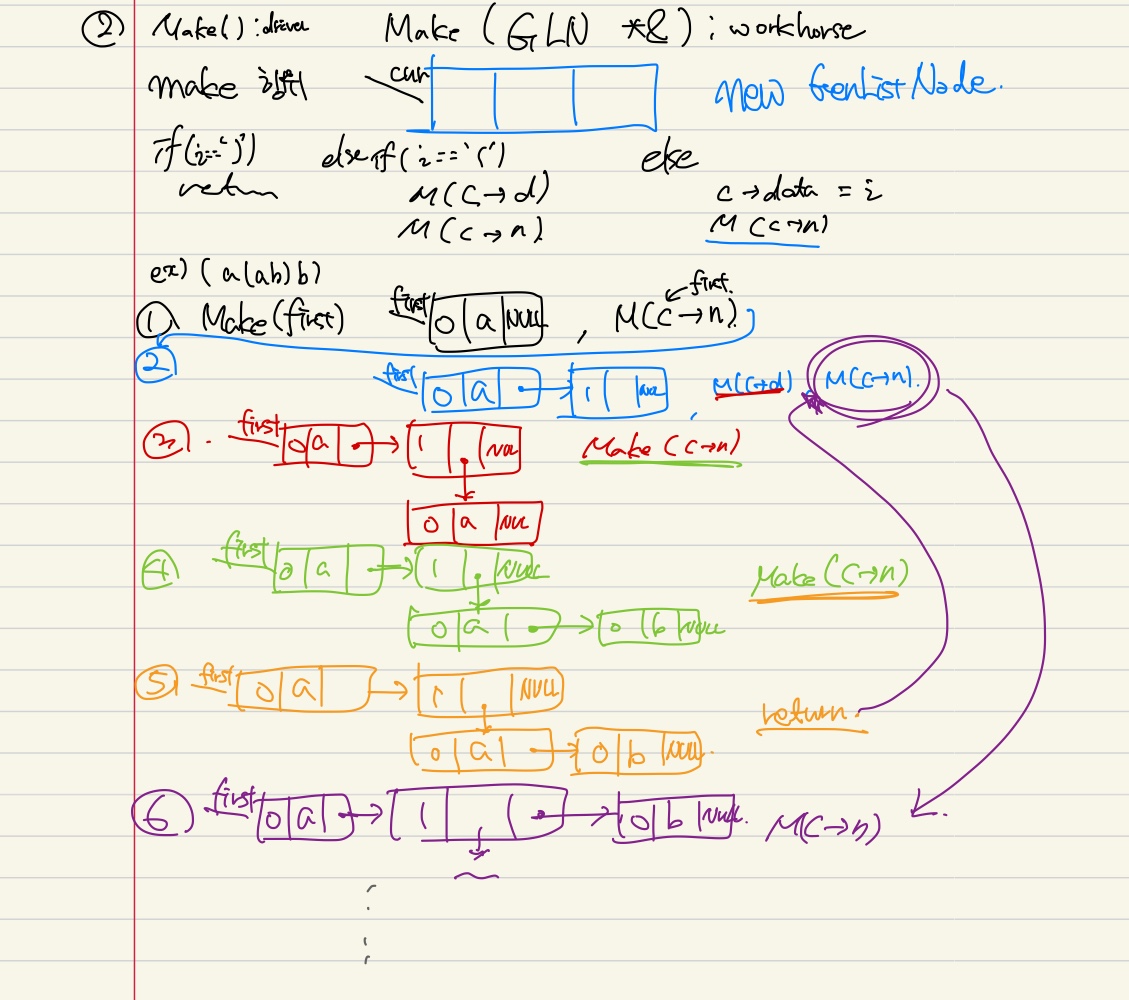 ② Make() : driver Make (GLN *&) : workhorse
make 입력 curr new GenListNode.
if(i==')') else if(i=='(') else
return M(C→d) c→data = i
M(c→n) M(c→n)
ex) (a(ab)b)
first.
① Make(first) first 0 a NULL , M(C→n)
② first 0 a 1 NULL M(C→d), M(C→n).
③. first 0 a 1 NULL Make(c→n)
0 a NULL
④ first 0 a 1 NULL Make(C→n)
0 a 0 b NULL
⑤ first 0 a 1 NULL
return.
0 a 0 b NULL.
⑥ first 0 a 1 0 b NULL. M(C→n)